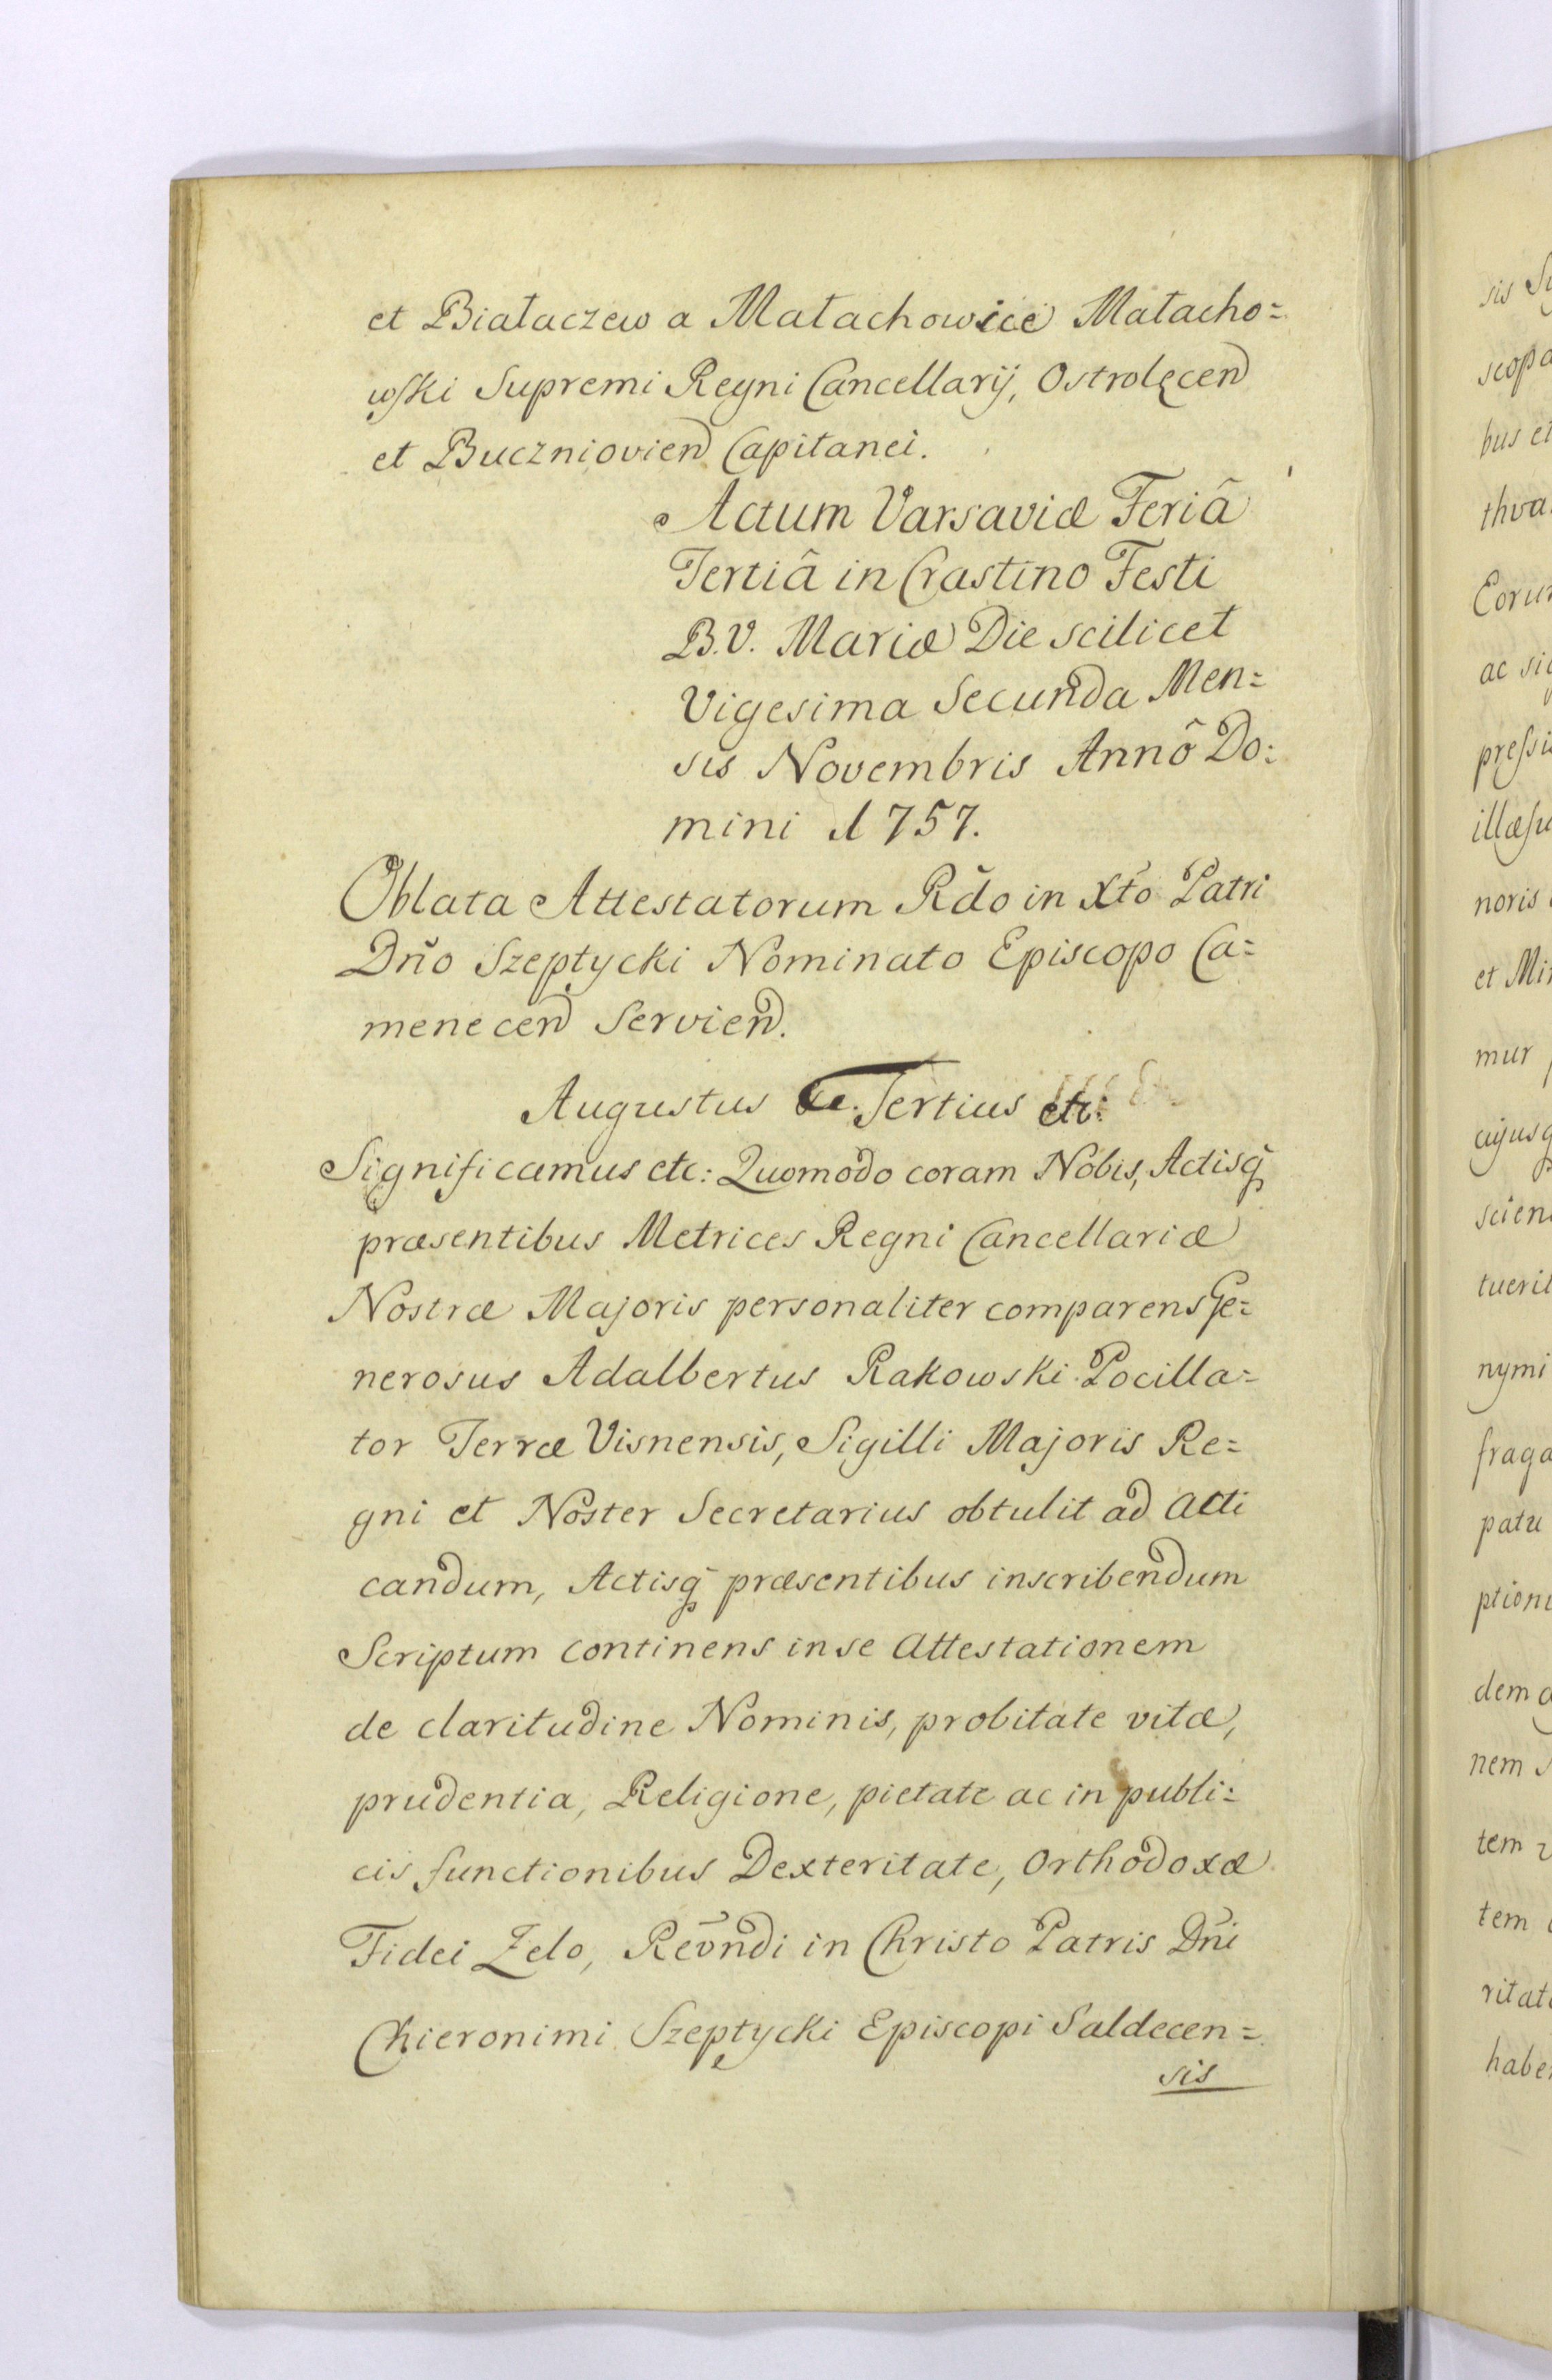 et Białaczew a Małachowice Małacho=
wski Supremi Regni Cancellarij, Ostrolęcen
et Buczniovien Capitanei.
Actum Varsaviæ Feriâ
Tertiâ in Crastino Festi
B.V. Mariæ Die scilicet
Vigesima Secunda Men=
sis Novembris Annô Do=
mini 1757.
Oblata Attestatorum Rdo in Xto Patri
Dño Szeptycki Nominato Episcopo Ca=
menecen Servien.
Augustus Tertius etc:
Significamus etc: Quomodo coram Nobis, Actisq
præsentibus Metrices Regni Cancellariæ
Nostræ Majoris personaliter comparens Ge=
nerosus Adalbertus Rakowski Pocilla=
tor Terræ Visnensis, Sigilli Majoris Re=
gni et Noster Secretarius obtulit ad Acti
candum, Actisq præsentibus inscribendum
Scriptum continens in se Attestationem
de claritudine Nominis, probitate vitæ,
prudentia, Religione, pietate ac in publi=
cis functionibus Dexteritate, Orthodoxæ
Fidei Zelo, Revndi in Christo Patris Dñi
Chieronimi Szeptycki Episcopi Saldecen=
sis
sis
scop
bus et
thva
ac
et Mi
mur
scien
tuerit
nymi
fraga
patu
ption
dem
nem
tem
tem
ritat
habe